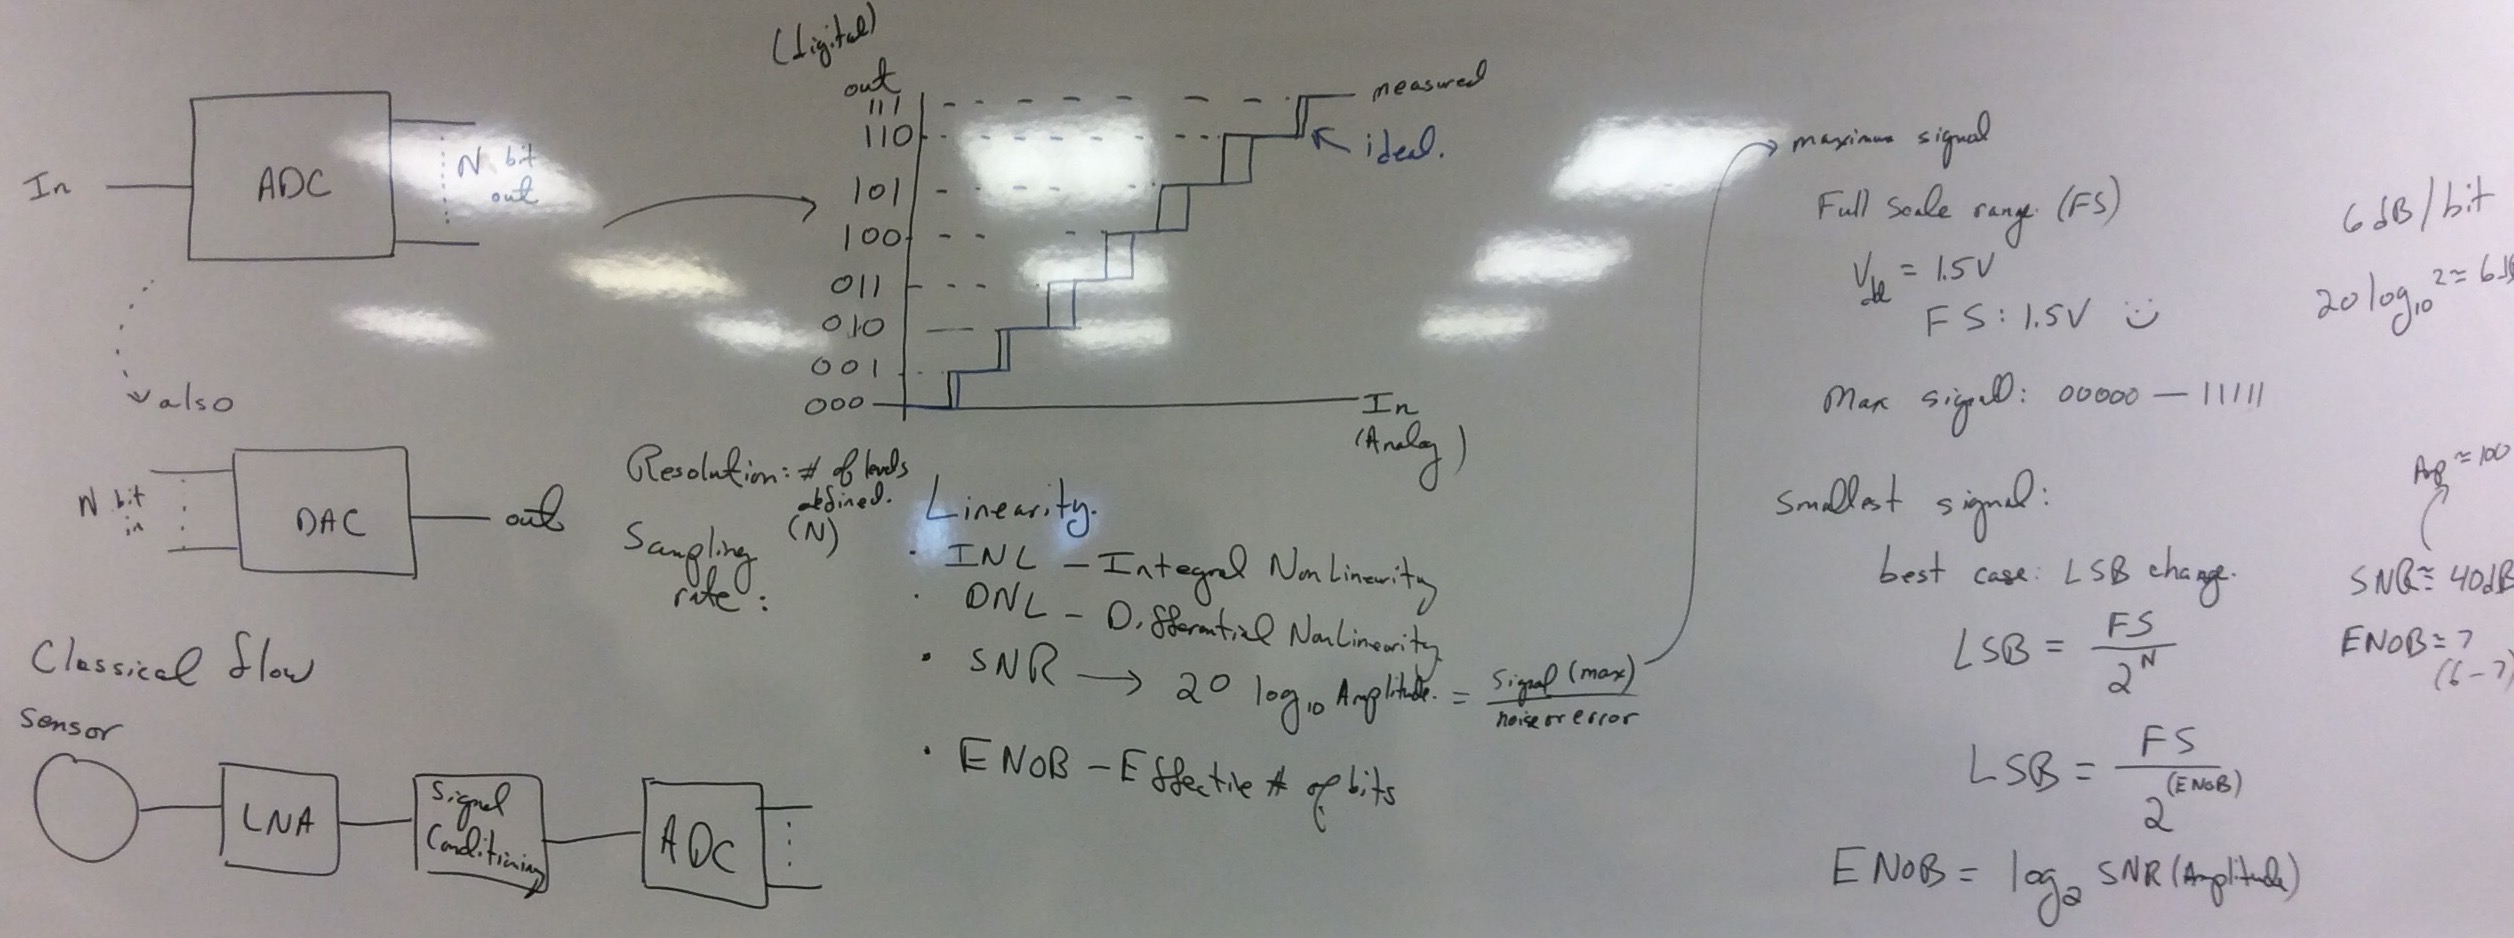 In
ADC
N bit
out
also
N bit
in
DAC
out
(digital)
out
111
110
101
100
011
010
001
000
measured
ideal.
In
(Analog)
Resolution: # of levels
defined.
(N)
Sampling
rate:
Linearity.
• INL – Integral NonLinearity
• DNL – Differential NonLinearity
• SNR → 20 log10 Amplitude. = Signal (max)
noise or error
• ENOB – Effective # of bits
Classical flow
Sensor
LNA
Signal
Conditioning
ADC
maximum signal
Full Scale range (FS)
Vdd = 1.5V
FS: 1.5V
Max signal: 00000 — 11111
smallest signal:
best case: LSB change.
LSB = FS
2^N
LSB = FS
2^(ENOB)
ENOB = log2 SNR (Amplitude)
6 dB/bit
20 log10 2 ≈ 6d
Amp ≈ 100
SNR ≈ 40dB
ENOB ≈ 7
(6-7)